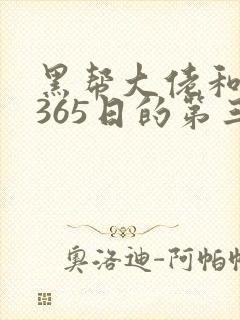 黑帮大佬和
365日的第三
奥洛迪-阿帕帕